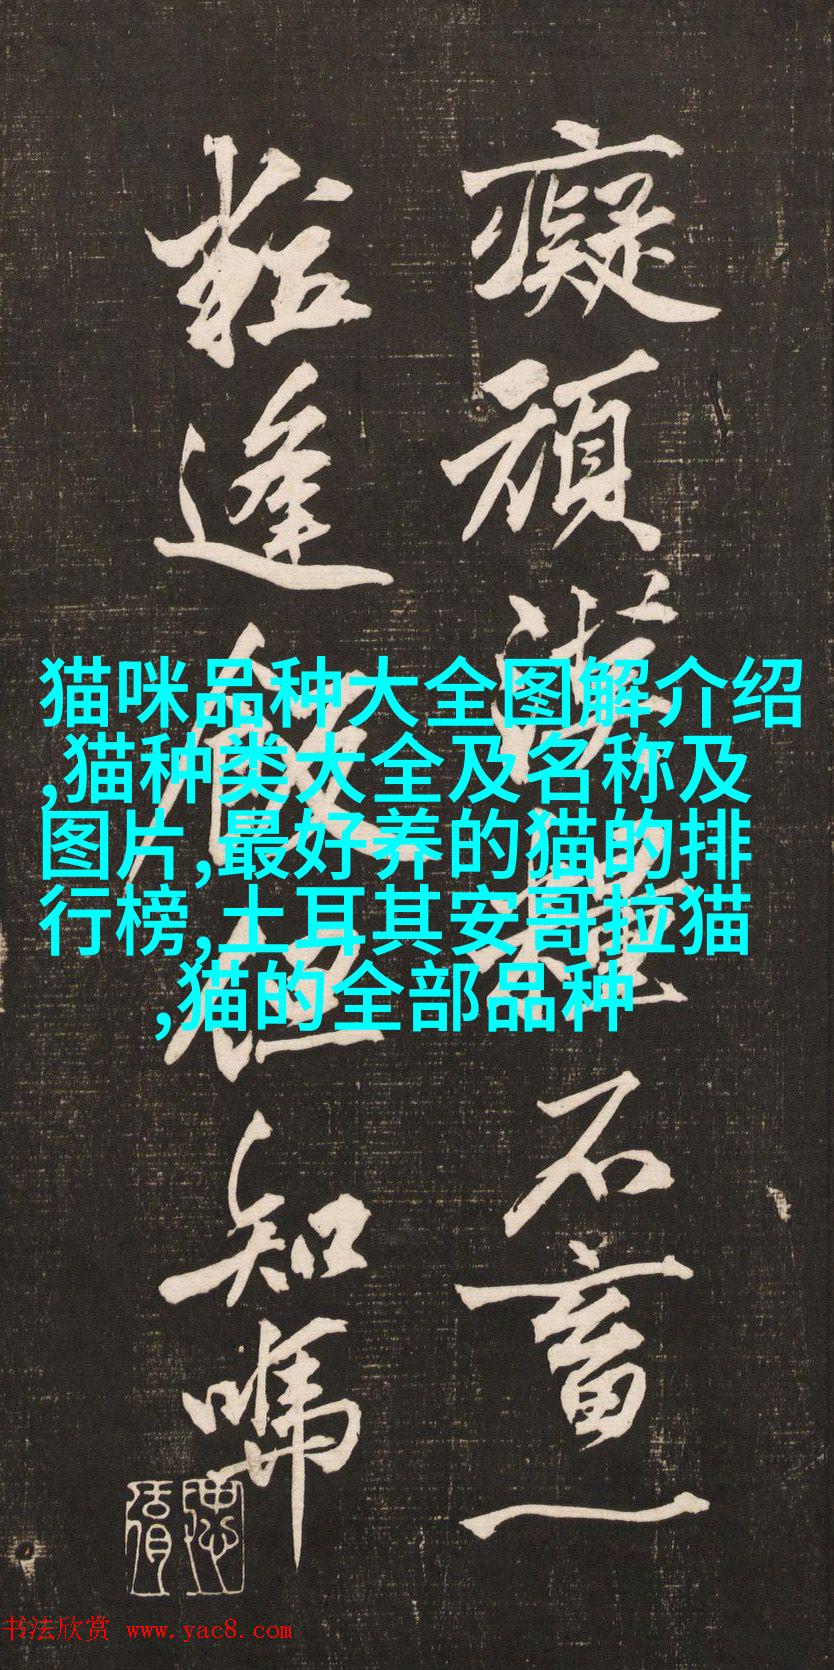 癡頑石畜一
逢但知
猫咪品种大全图解介绍
,猫种类大全及名称及
图片,最好养的猫的排
行榜,土耳其安哥拉猫
,猫的全部品种
书法欣赏 www.yac8.com